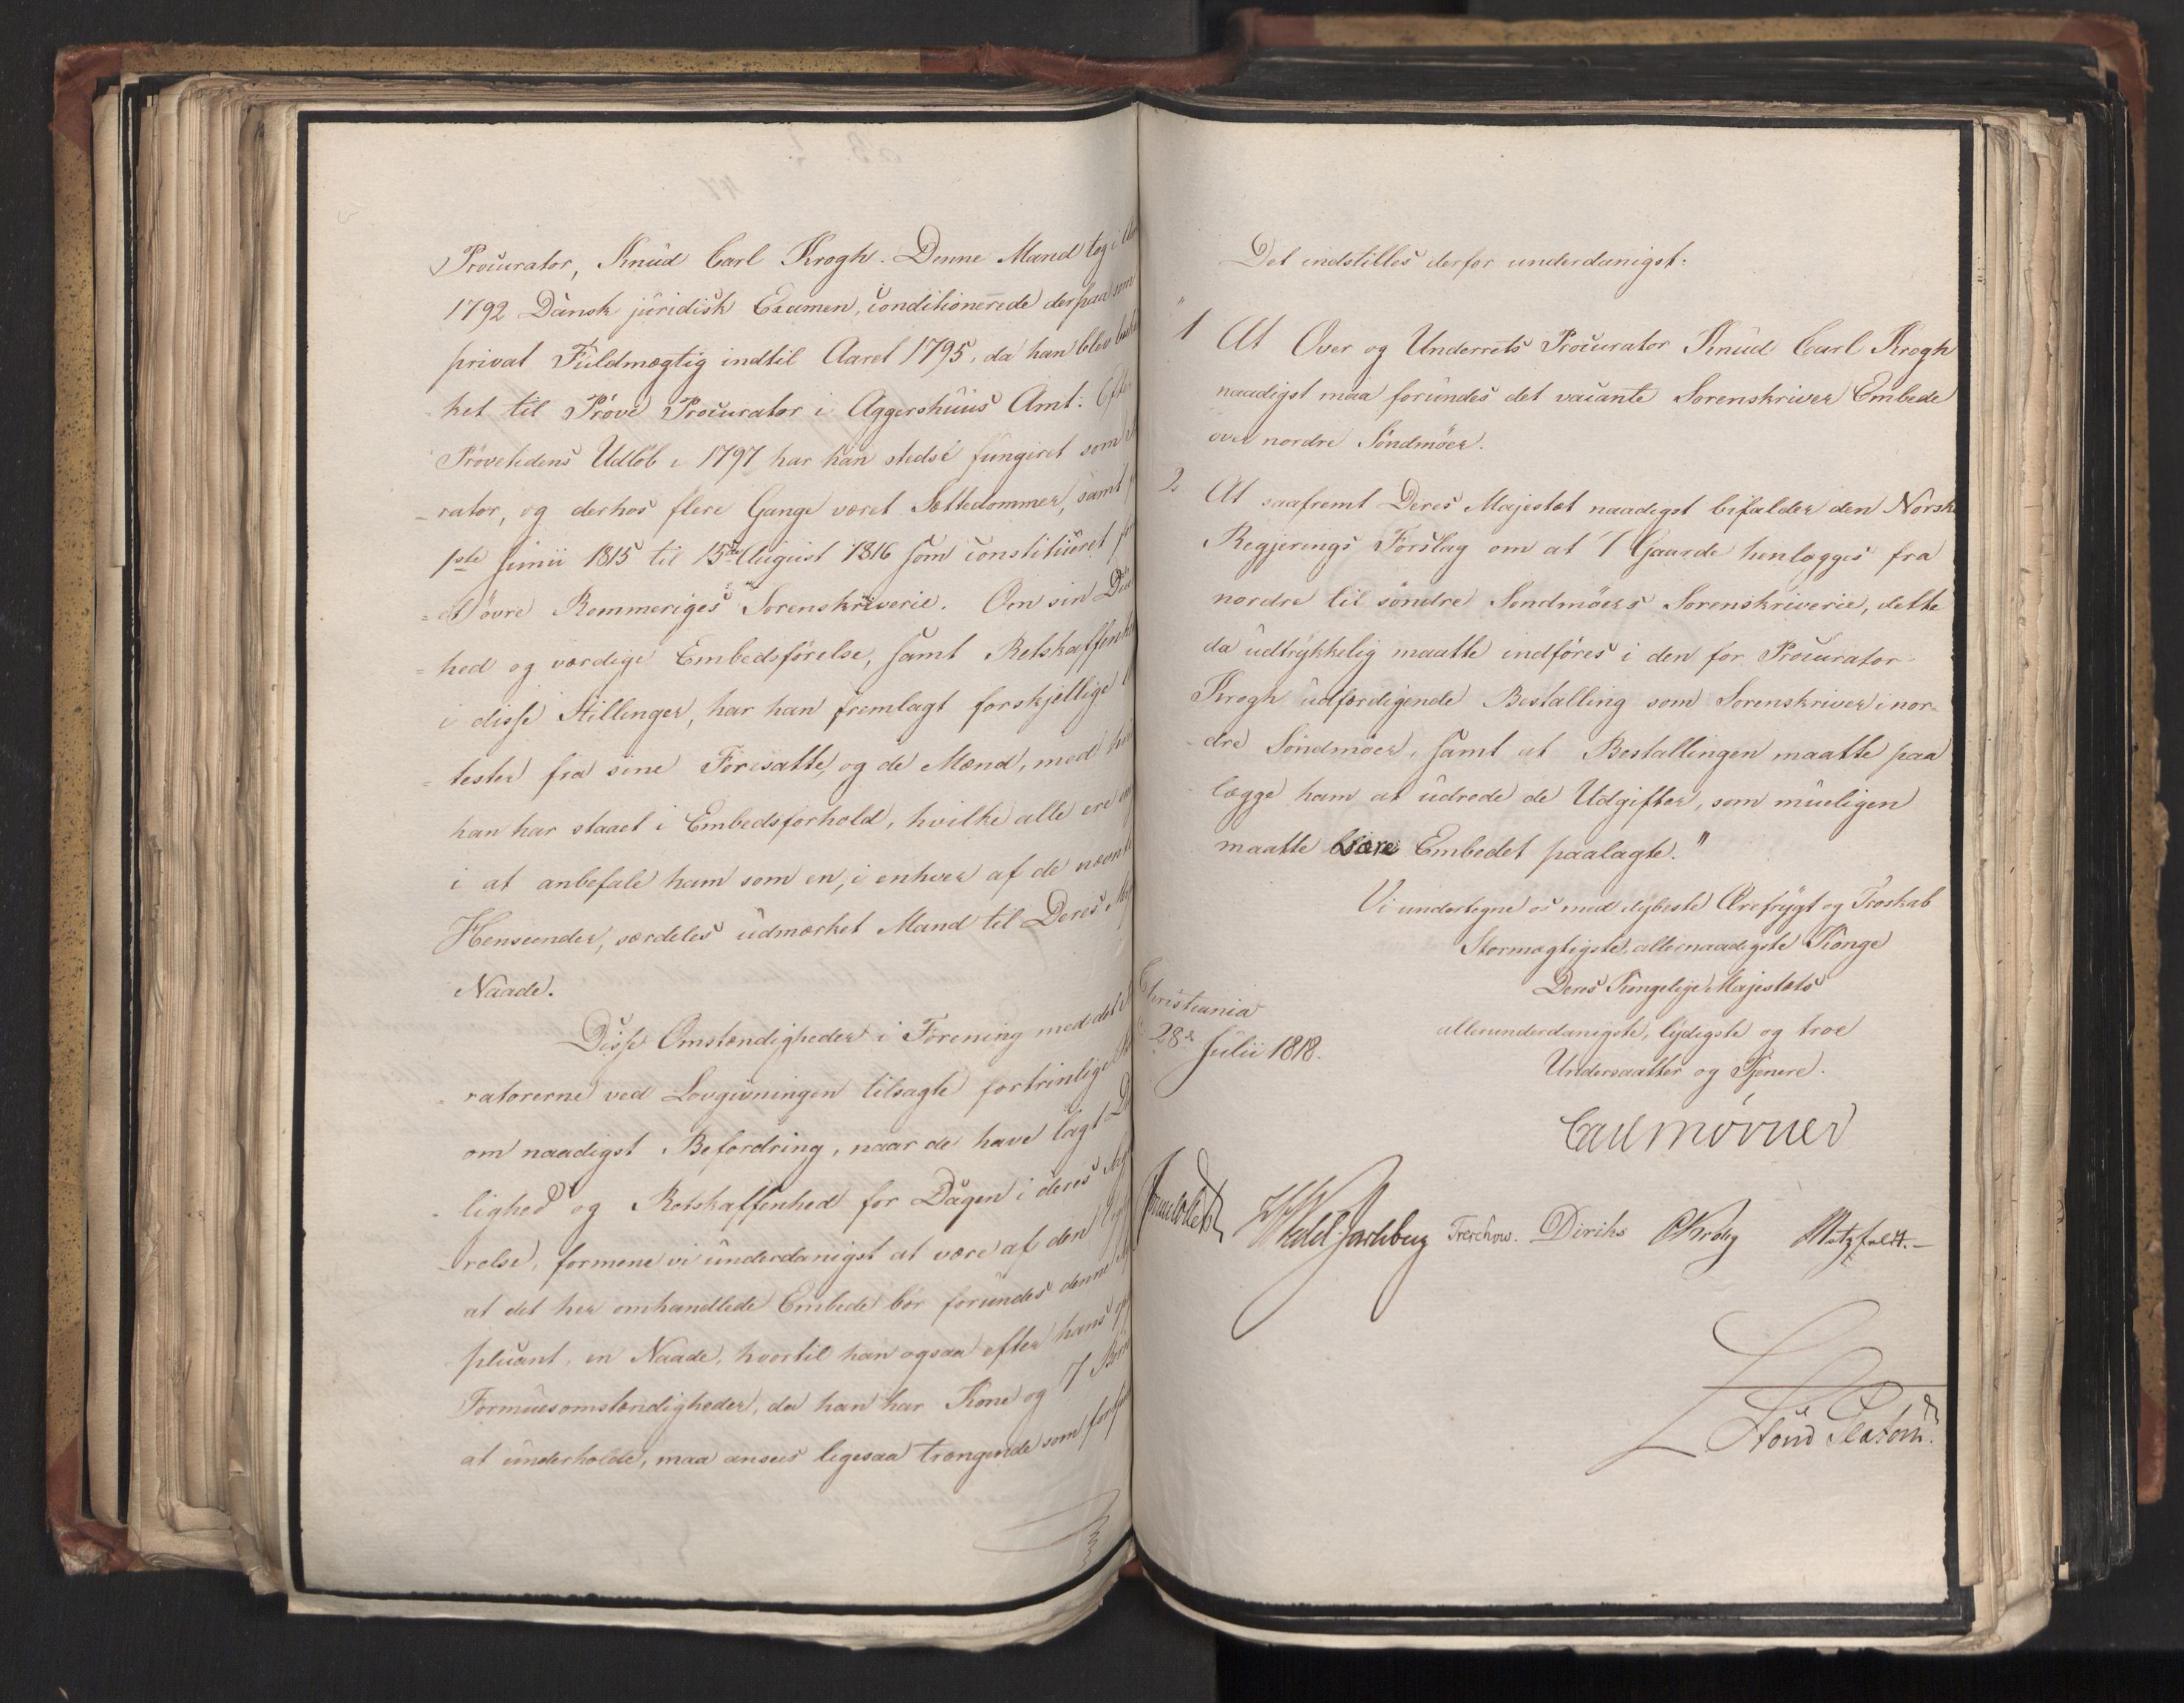 Procurator, Knud Carl Krogh. Denne Mand tog i
1792 Dansk juridisk Examen, conditionerede derpaa som
privat Fuldmægtig indtil Aaret 1795, da han blev
ket til Prøve Procurator i Aggershuus Amt: Efter
Prøvetidens Udløb i 1797 har han stedse fungeret som
-rator, og derhos flere Gange været Sættedommer, samt
1ste Junii 1815 til 15de August 1816 som constitueret
øvre Rommeriges Sorenskriverie. Om sin
=hed og værdige Embedsførelse, samt
i disse Stillinger, har han fremlagt forskjellige
=tester fra sine Foresatte, og de Mænd, med
han har staaet i Embedsforhold, hvilke alle ere
i at anbefale ham som en, i enhver af de
Henseender, særdeles udmærket Mand til Deres
Naade.
Disse Omstændigheder i Forening med
ratorerne ved Lovgivningen tilsagte fortrinlige
om naadigst Befordring, naar de have lagt
-lighed og Retskaffenhed for Dagen i deres
-relse, formene vi underdanigst at være af den
at det her omhandlede Embede bør forundes denne
plicant, en Naade, hvortil han ogsaa efter hans
Formuesomstændigheder, da han har Kone og 7
at underholde, maa ansees ligesaa trængende som
Det indstilles derfor underdanigst:
"
1 At Over og Underrets Procurator Knud Carl Krogh
naadigst maa forundes det vacante Sorenskriver Embede
over nordre Søndmøer.
2 At saafremt Deres Majestæt naadigst bifalder den Norske
Regjerings Forslag om at 7 Gaarde henlægges fra
nordre til søndre Søndmøers Sorenskriverie, dette
da udtrykkelig maatte indføres i den for Procurator
Krogh udfærdigende Bestalling som Sorenskriver i nor-
dre Søndmøer, samt at Bestallingen maatte paa
lægge ham at udrede de Udgifter, som mueligen
maatte være Embedet paalagte."
Vi undertegne os med dybeste Ærefrygt og Troskab
Stormægtigste, allernaadigste Konge
Deres Kongelige Majestæts
allerunderdanigste, lydigste og troe
Undersaatter og Tjenere.
Christiania
28de Julii 1818.
Carl Mörner
Jonas Collett Wedel Jarlsberg Treschow. Diriks Krohg Motzfeldt.-